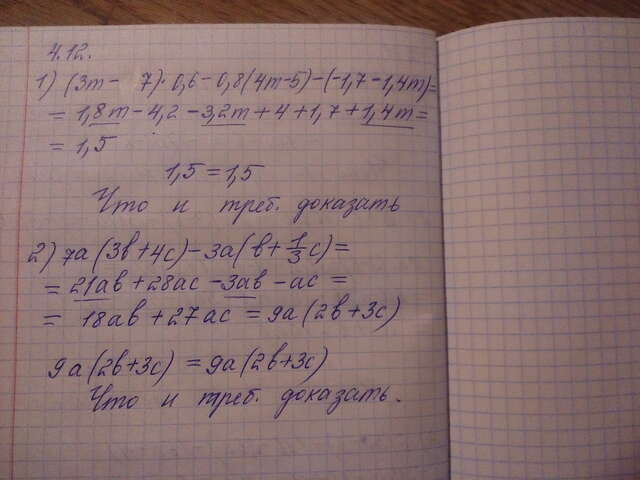 4.12.
1) (3m - 7)·0,6 - 0,8(4m-5) - (-1,7-1,4m)=
= 1,8m - 4,2 - 3,2m + 4 + 1,7 + 1,4m =
= 1,5
1,5 = 1,5
Что и треб. доказать
2) 7а(3в+4с) - 3а(в+1/3с) =
= 21ав + 28ас - 3ав - ас =
= 18ав + 27ас = 9а(2в+3с)
9а(2в+3с) = 9а(2в+3с)
Что и треб. доказать.